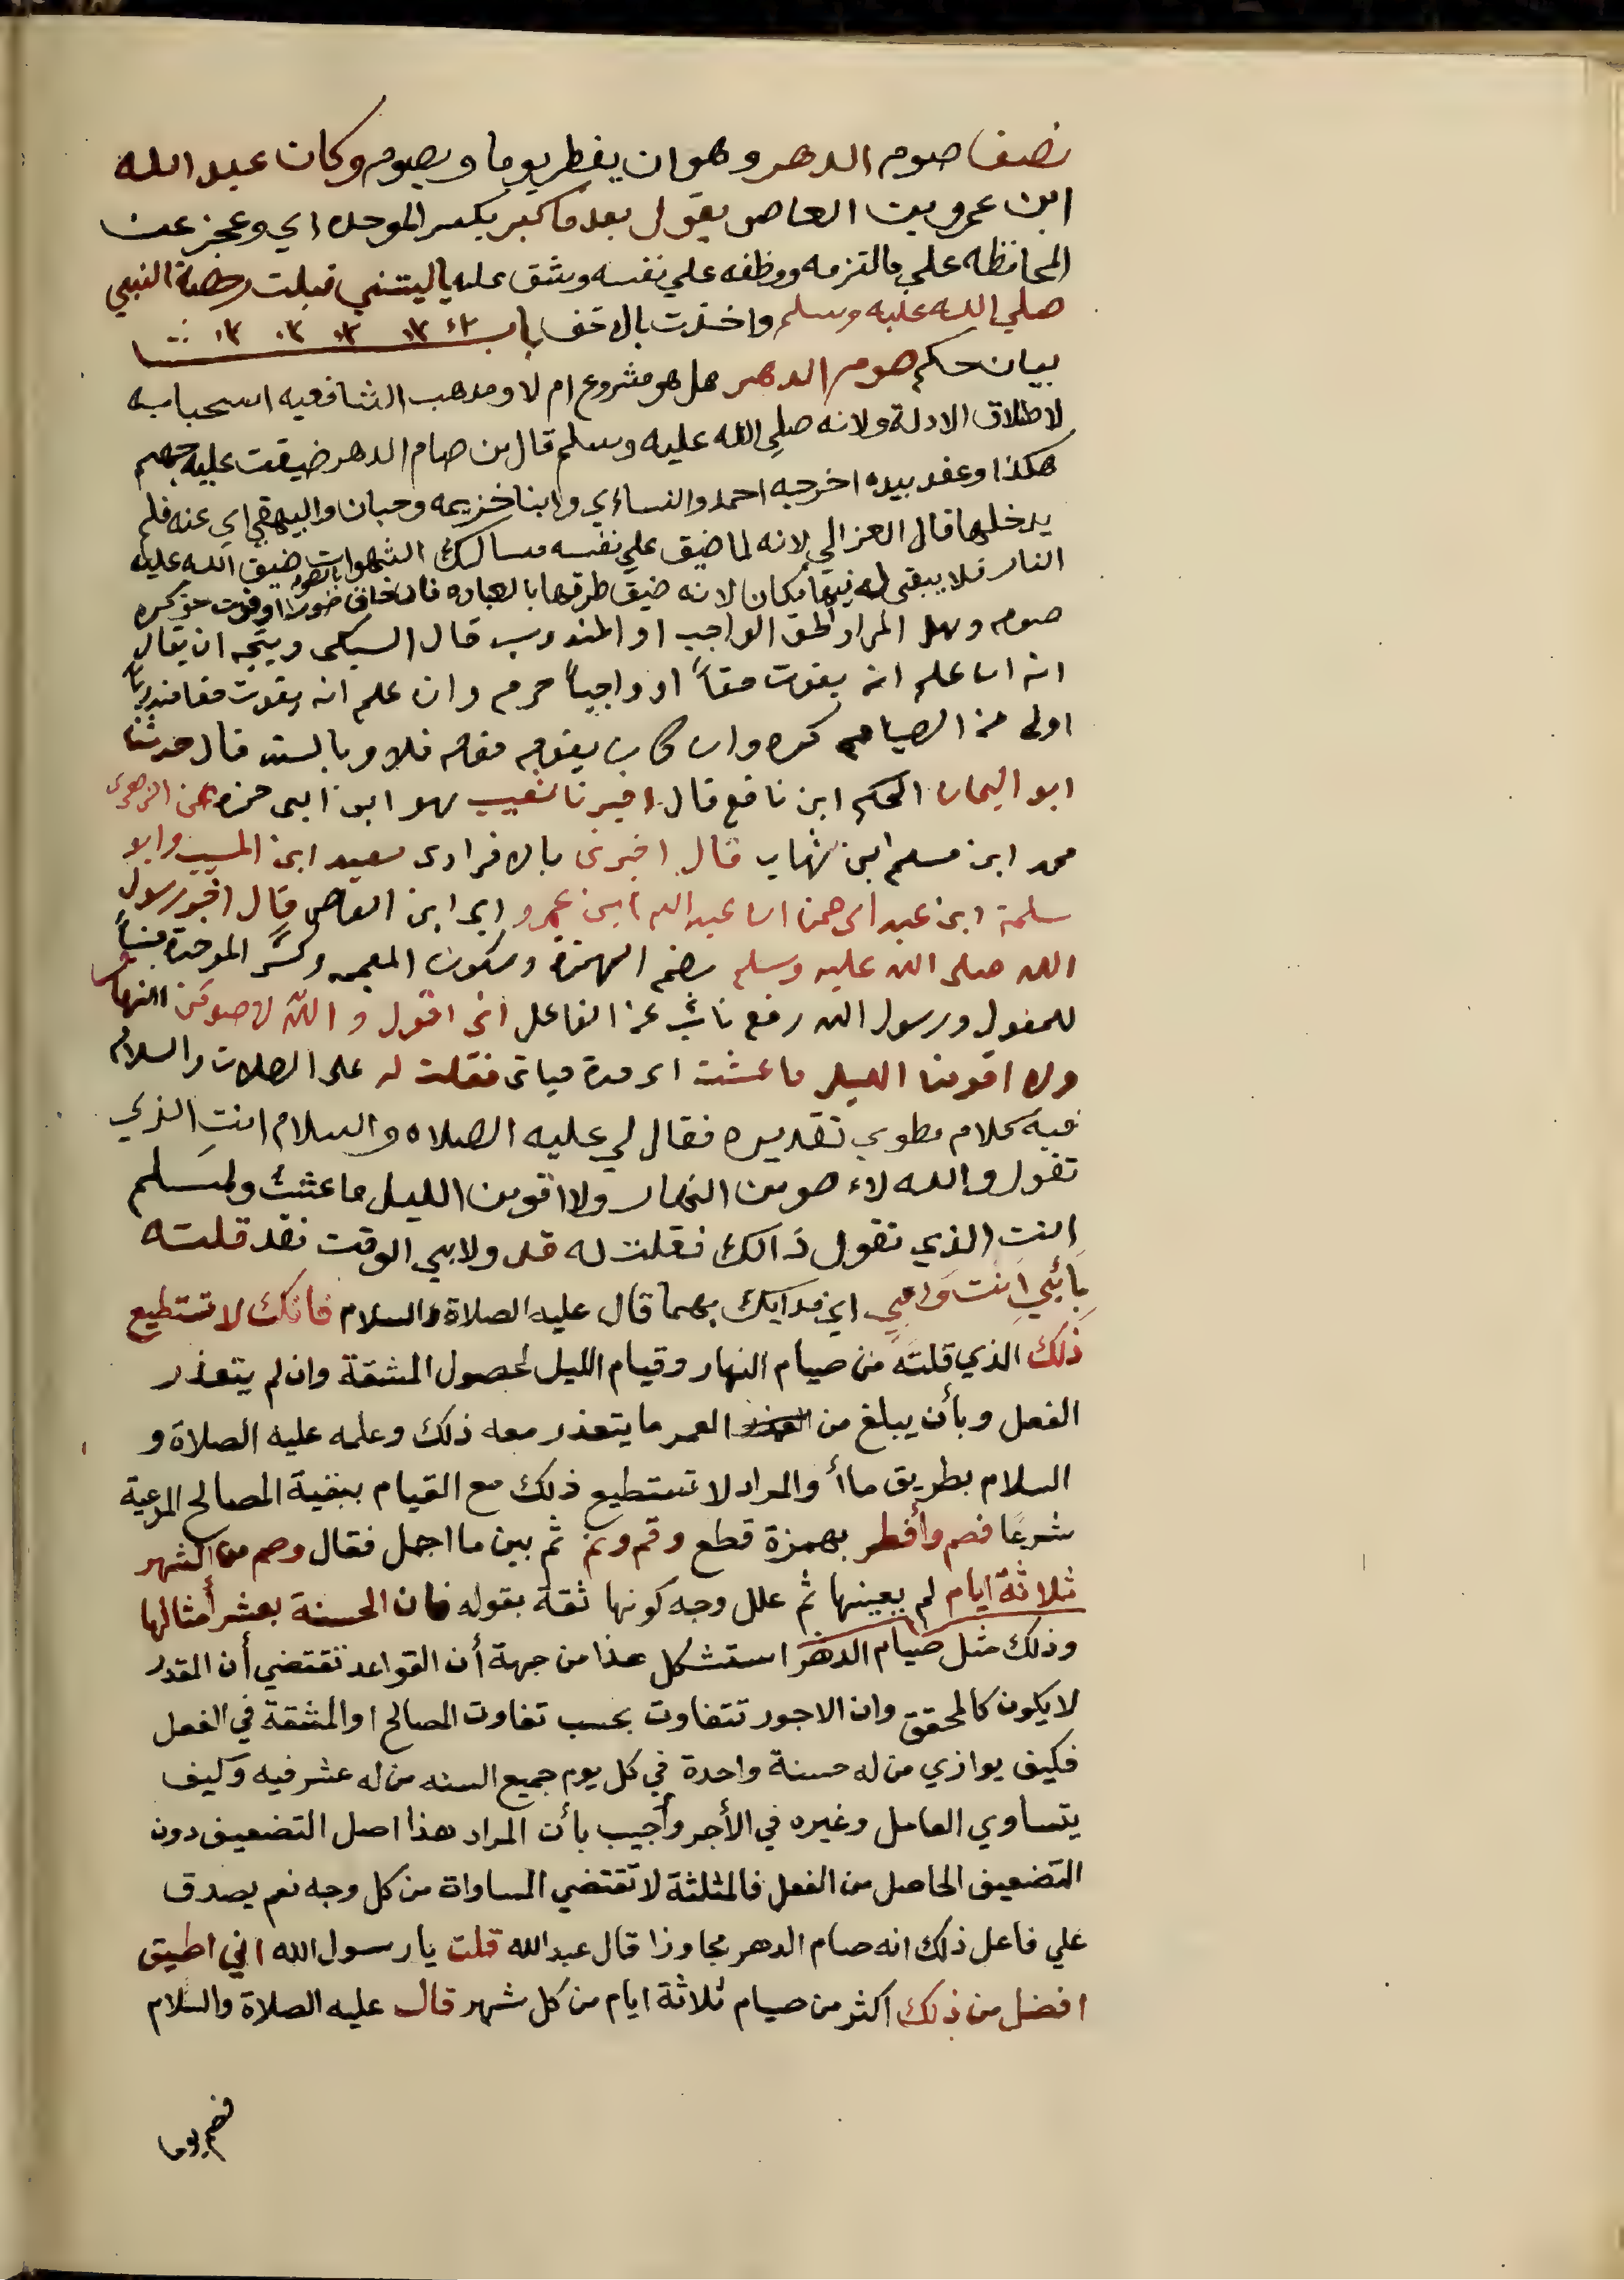 نصف صوم الدهر وهو ان يفطر يوما ويصوم وكان عبد الله
ابن عمرو بن العاص يقول بعد ما كبر بكسر الموحده اي وعجز عن
المحافظه علي ما التزمه ووظفه علي نفسه وشق عليه يا ليتني قبلت رخصة النبي
صلي الله عليه وسلم واخذت بالاخف باب
بيان حكم صوم الدهر هل هو مشروع ام لا ومذهب الشافعيه استحبابه
لاطلاق الادلة ولانه صلي الله عليه وسلم قال من صام الدهر ضيقت عليه جهنم
هكذا وعقد بيده اخرجه احمد والنسائي وابنا خزيمه وحبان والبيهقي اي عنه فلم
يدخلها قال الغزالي لانه لما ضيق علي نفسه مسالك الشهوات بالصوم ضيق الله عليه
النار فلا يبقي له فيها مكان لانه ضيق طرقها بالعباده فان خاف ضررا او فوت حق كره
صومه وهل المراد الحق الواجب او المندوب قال السبكى ويتجه ان يقال
انه ان علم انه يفوت حقاً او واجباً حرم وان علم انه يفوت حقا مندوباً
اولى من الصيام كره وان كان يقوم مقامه فلا وبالسند قال حدثنا
ابو اليمان الحكم ابن نافع قال اخبرنا شعيب هو ابن ابى حمزه عن الزهرى
محمد ابن مسلم ابن شهاب قال اخبرنى بالافراد سعيد ابن المسيب وابو
سلمة ابن عبد الرحمن ان عبد الله ابن عمرو اى ابن العاص قال اخبر رسول
الله صلى الله عليه وسلم بضم الهمزة وسكون المعجمه وكسر الموحدة مبنياً
للمفعول ورسول الله رفع نائب عن الفاعل انى اقول والله لاصومن النهار
ولا اقومن الليل ما عشت اى مدة حياتى فقلت له على الصلات والسلام
فيه كلام مطوي تقديره فقال لي عليه الصلاه والسلام انت الذي
تقول والله لاء صومن النهار ولا اقومن الليل ما عشت ولمسلم
انت الذي تقول ذالك فقلت له قد ولابي الوقت فقد قلته
بأبي انت وامي اي فدايتك بهما قال عليه الصلاة والسلام فانك لا تستطيع
ذلك الذي قلته من صيام النهار وقيام الليل لحصول المشقة وان لم يتعذر
الفعل وبأن يبلغ من العمر ما يتعذر معه ذلك وعلمه عليه الصلاة و
السلام بطريق ما أ والمراد لا تستطيع ذلك مع القيام ببقية المصالح المرعية
شرعًا فصم وأفطر بهمزة قطع وقم ونم ثم بين ما اجمل فقال وصم من الشهر
ثلاثة ايام لم يعينها ثم علل وجه كونها ثقة بقوله فان الحسنة بعشر أمثالها
وذلك مثل صيام الدهر استشكل هذا من جهة أن القواعد تقتضي أن المقدر
لا يكون كالمحقق وان الاجور تتفاوت بحسب تفاوت المصالح او المشقة في الفعل
فكيف يوازي من له حسنة واحدة في كل يوم جميع السنه من له عشر فيه وكيف
يتساوي العامل وغيره في الأجر وأجيب بأن المراد هذا اصل التضعيف دون
التضعيف الحاصل من الفعل فالمثلثة لا تقتضي المساواة من كل وجه نعم يصدق
علي فاعل ذلك انه صام الدهر مجاوزا قال عبد الله قلت يا رسول الله اني اطيق
افضل من ذلك اكثر من صيام ثلاثة ايام من كل شهر قال عليه الصلاة والسلام
فصم يوما